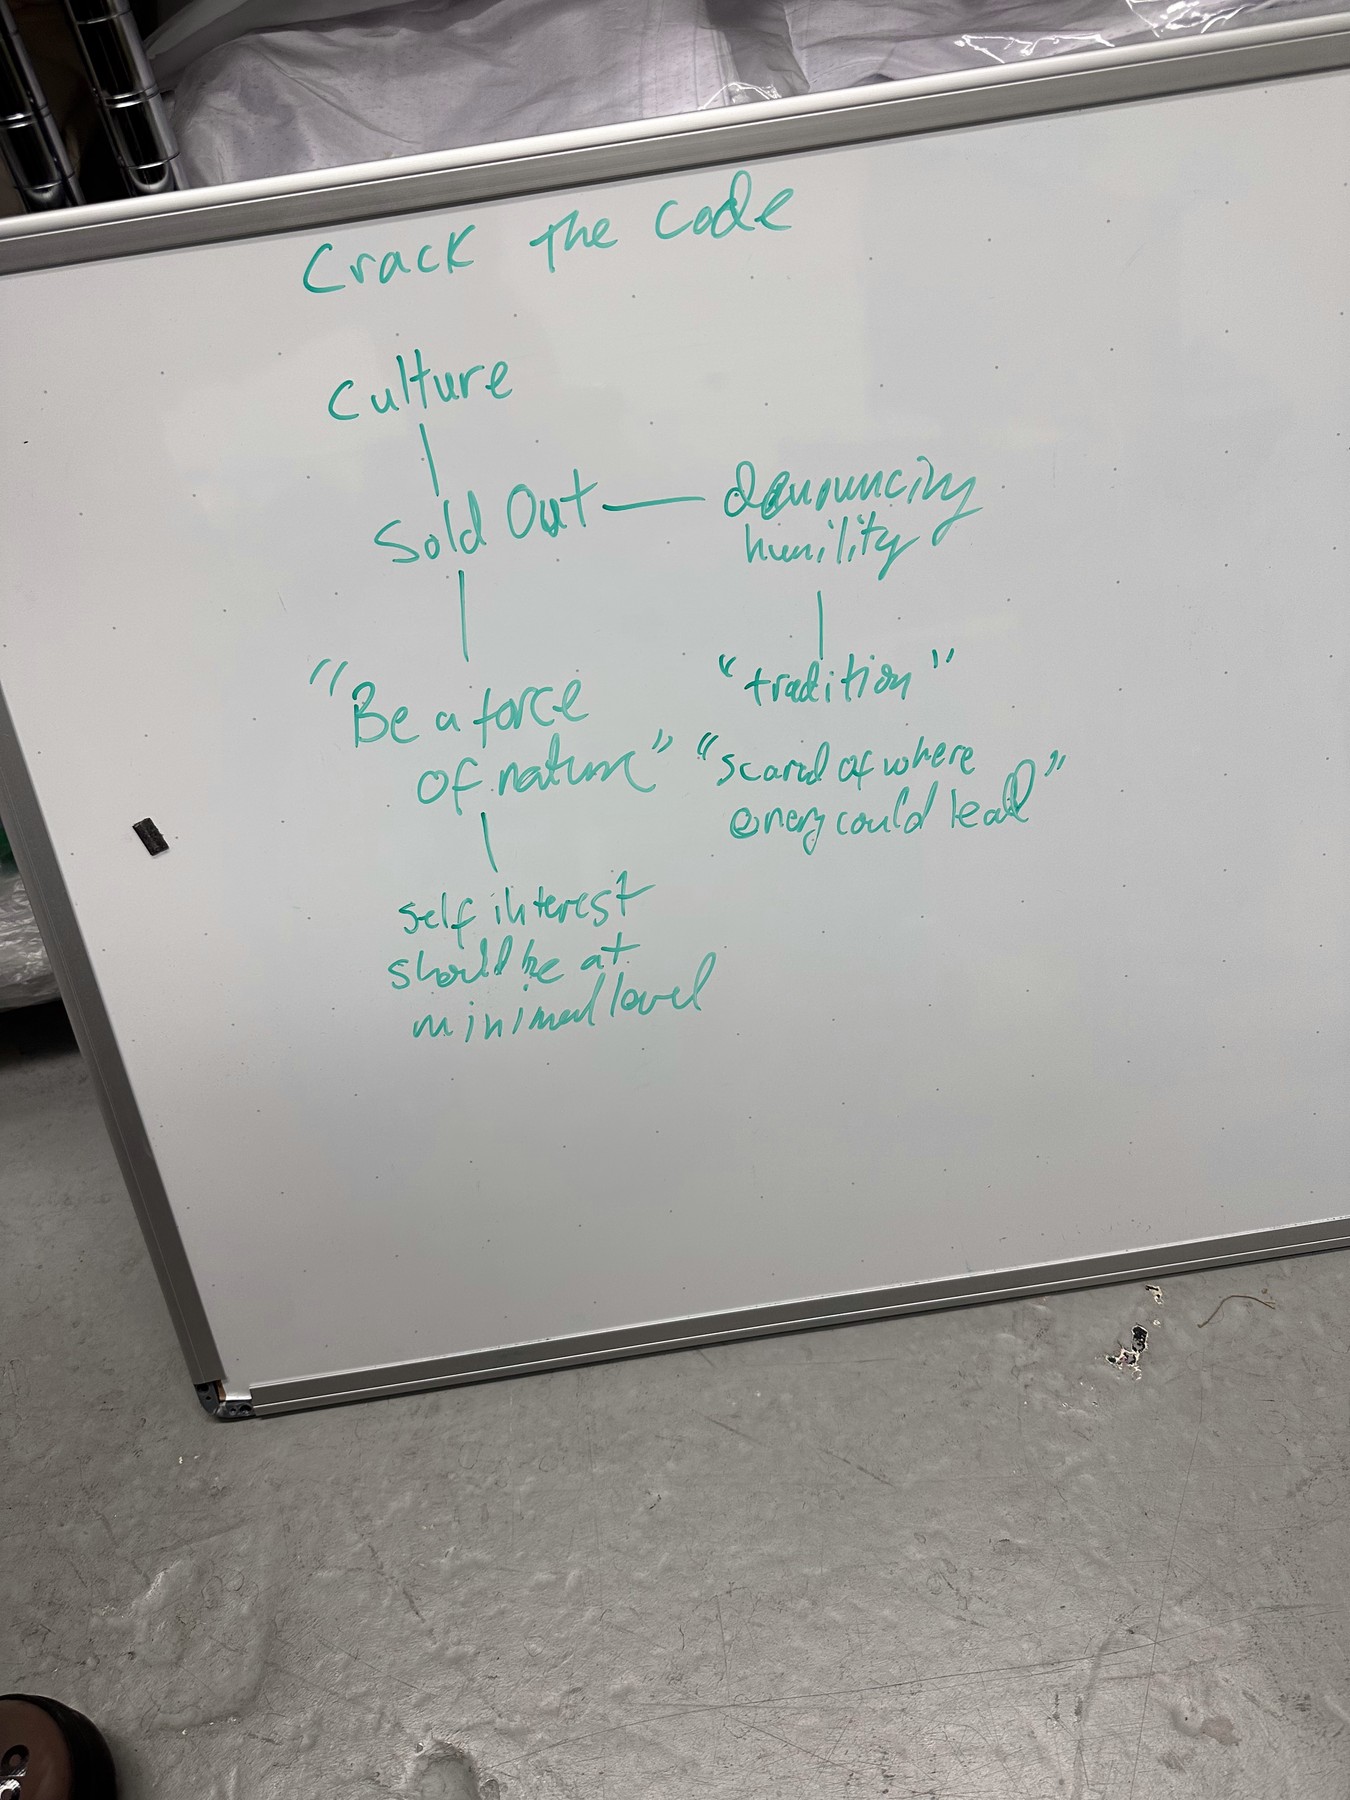 Crack the Code
Culture
Sold Out — denouncing
humility
"Be a force
of nature"
self interest
should be at
minimal level
"tradition"
"scared of where
energy could lead"